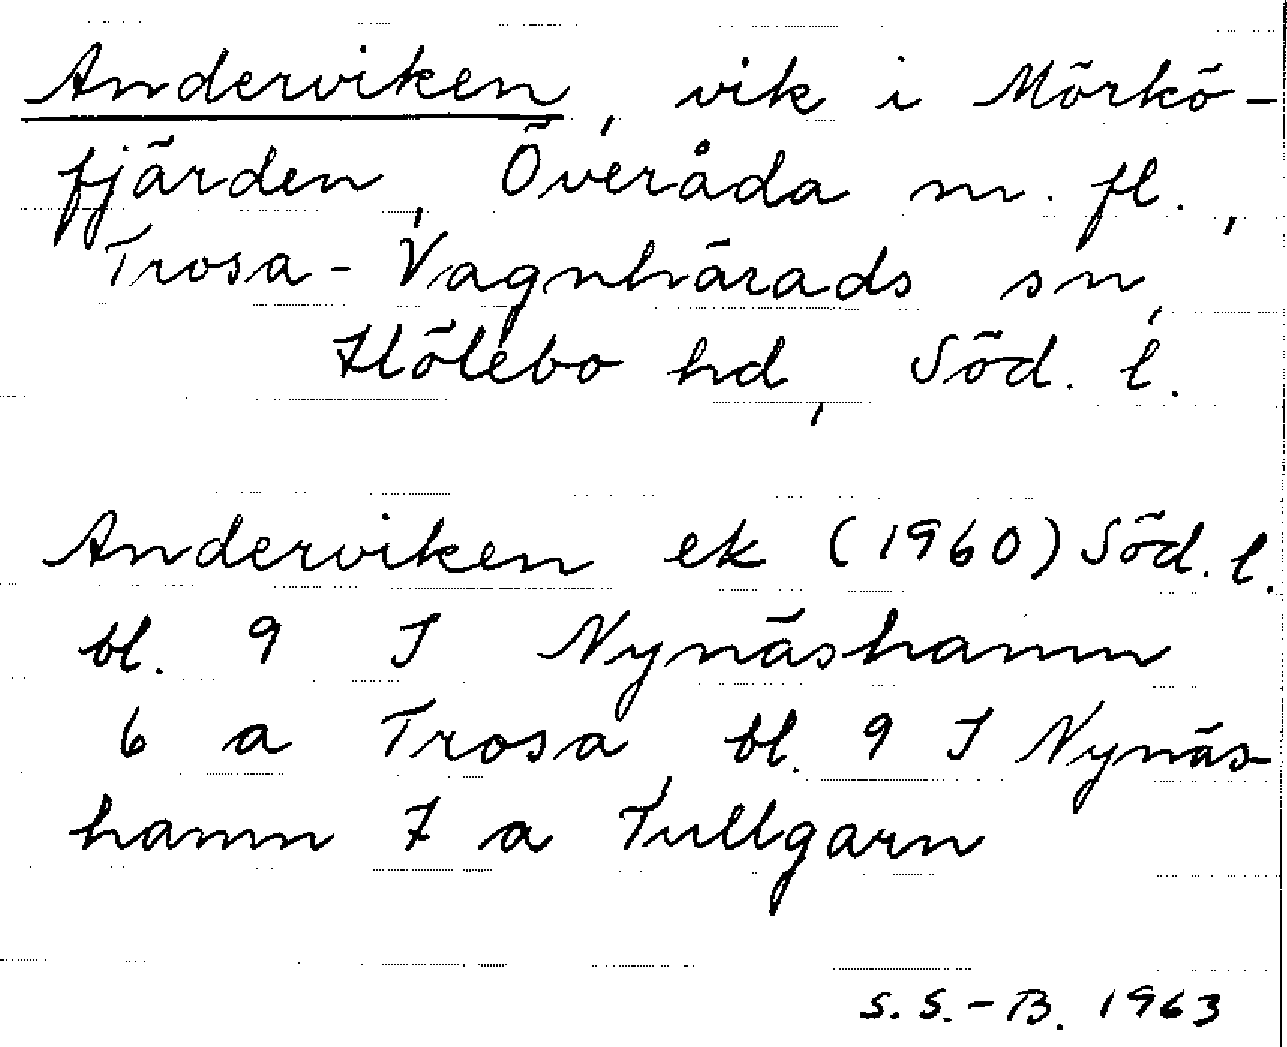 Anderviken, vik i Mörkö-
fjärden, Överåda m. fl.,
Trosa-Vagnhärads sn,
Hölebo hd, Söd. l.
Anderviken ek (1960) Söd. l.
bl. 9 I Nynäshamn
6 a Trosa, bl. 9 I Nynäs-
hamn 7 a Tullgarn
S. S.-B. 1963